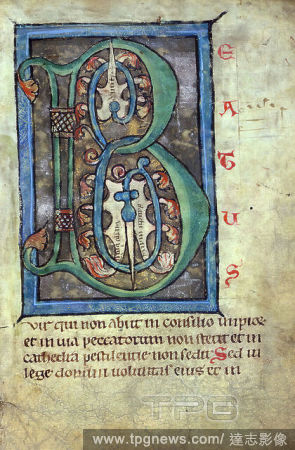 B
E
A
T
U
S
Vir qui non abiit in consilio impioꝝ
et in uia peccatorum non stetit et in
cathedra pestilentie non sedit Sed in
lege domini uoluntas eius et in
TPG
www.tpgnews.com / 達志影像